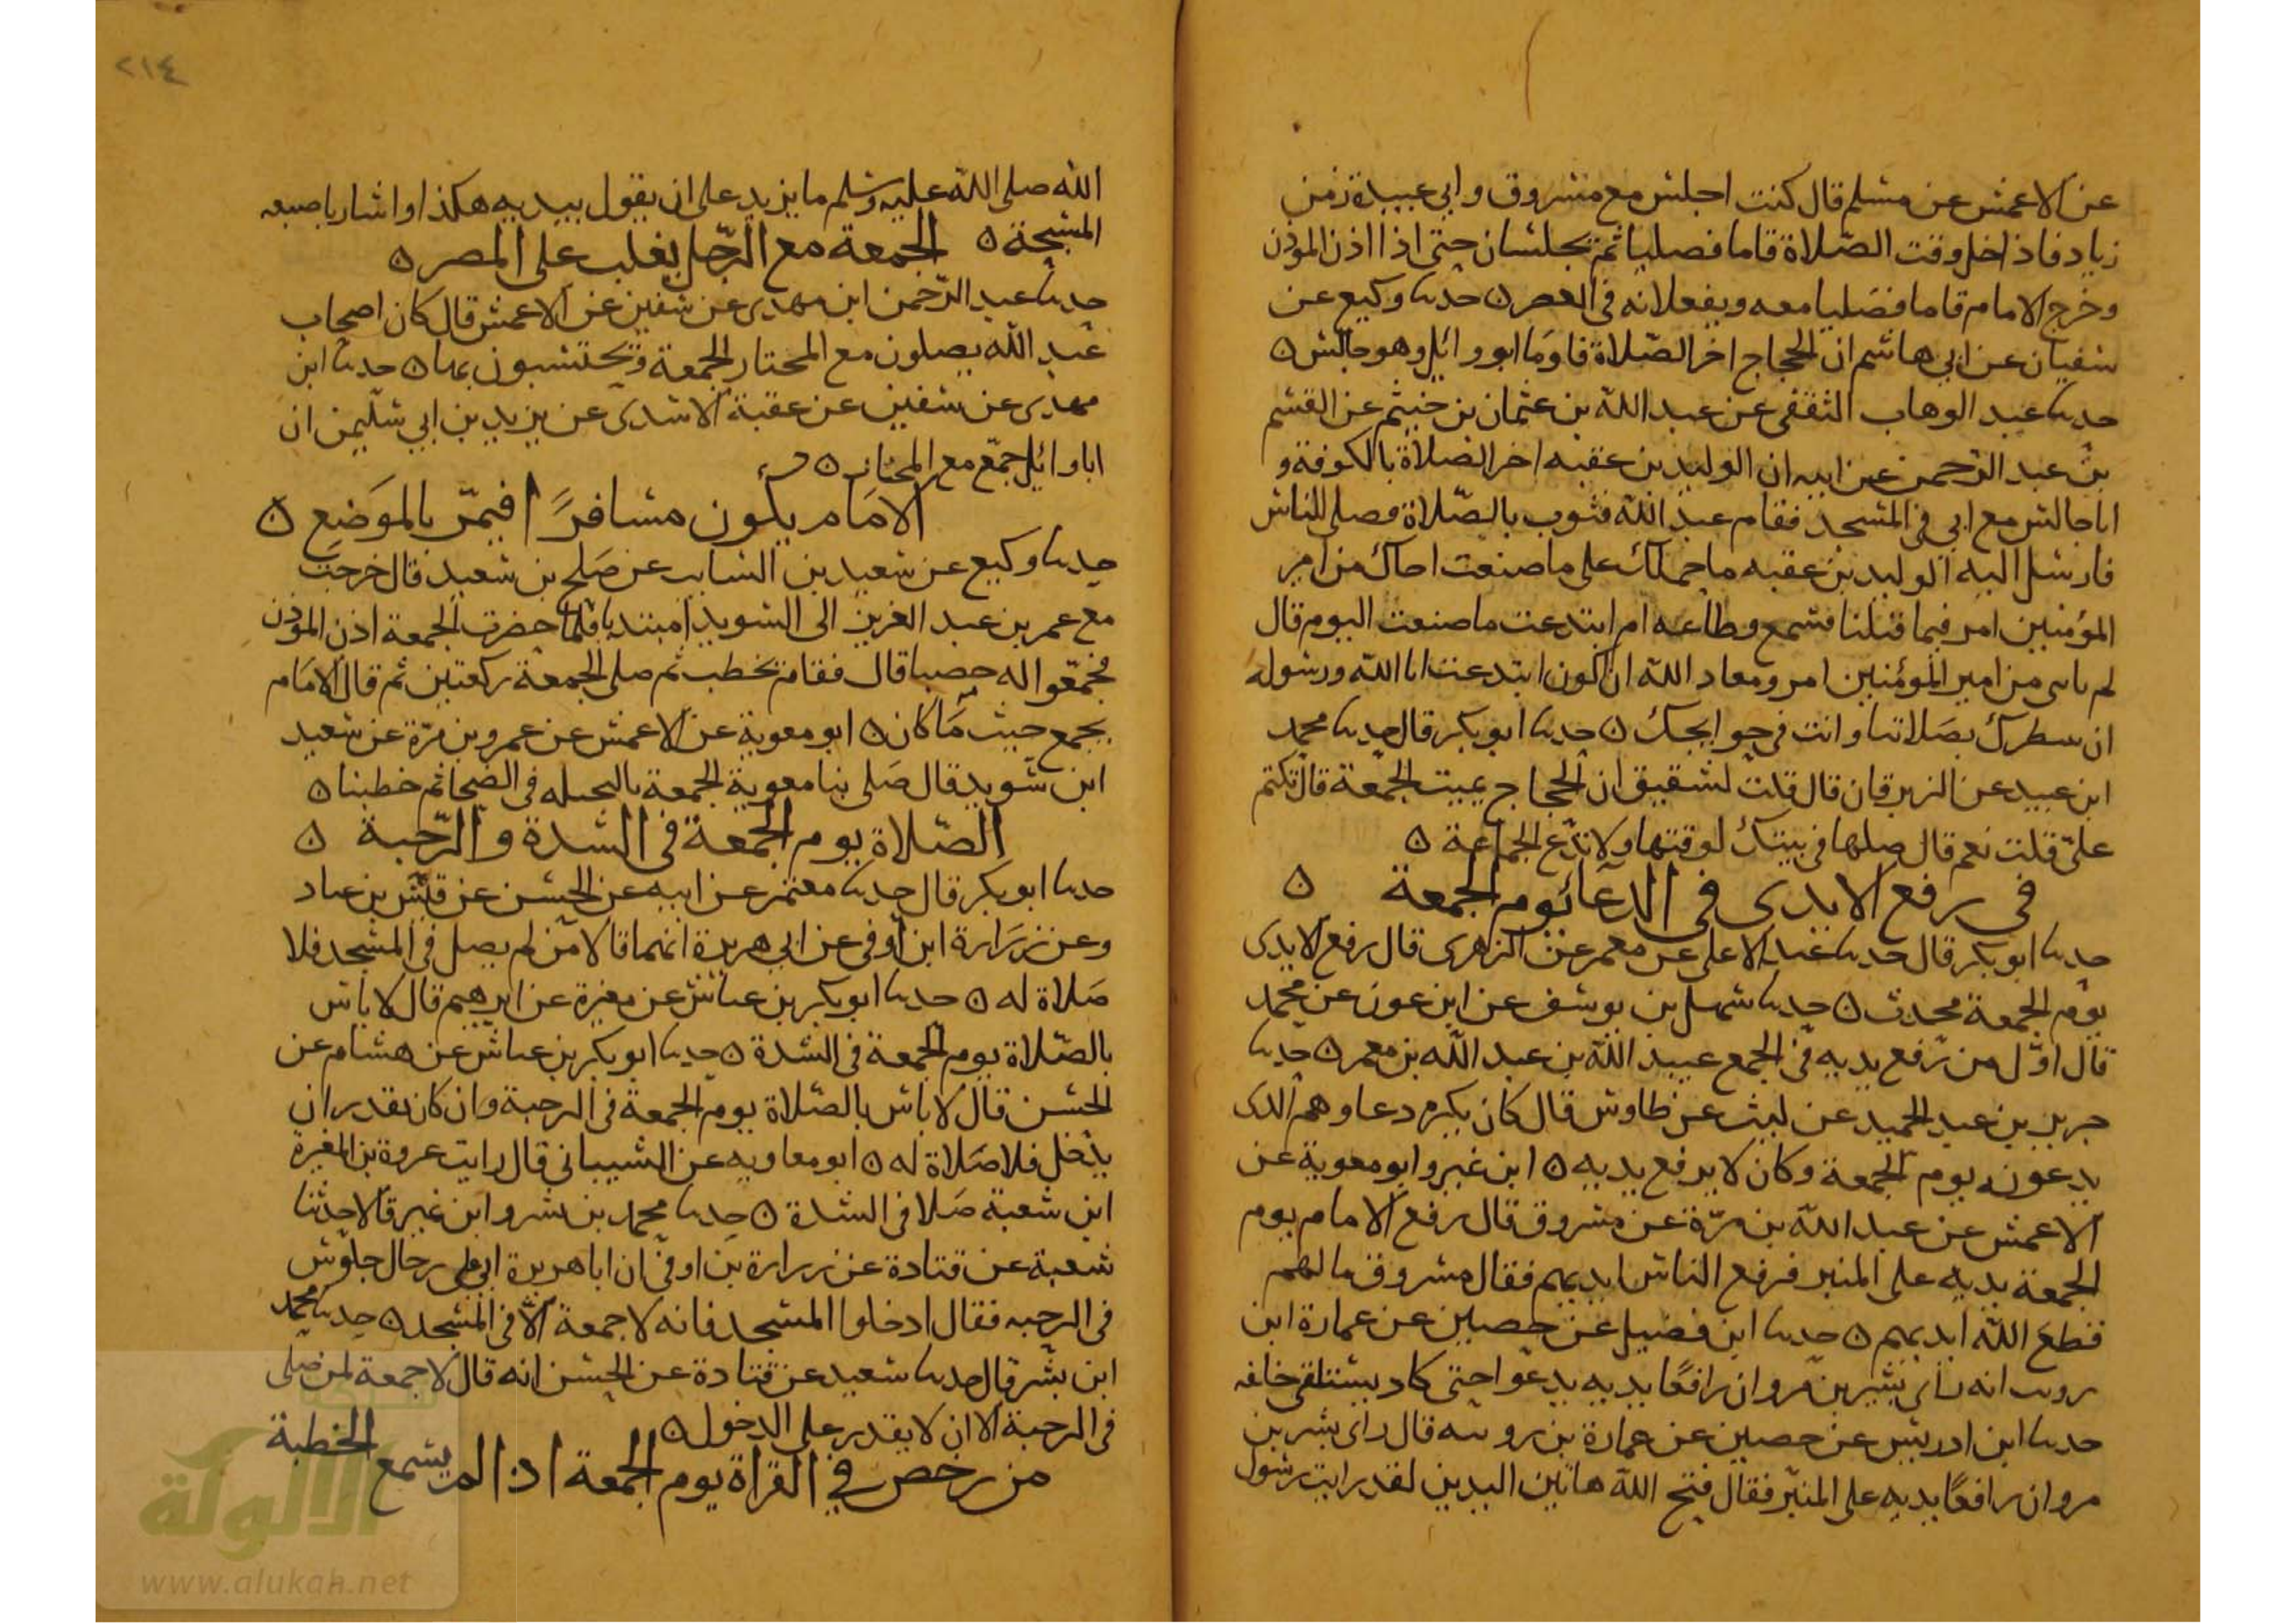 عن الاعمش عن مسلم قال كنت اجلس مع مسروق وابي عبيدة زمن
زياد فاذا دخل وقت الصلاة قاما فصليا ثم يجلسان حتى اذا اذن المؤذن
وخرج الامام قاما فصليا معه ويفعلانه في العصر ه حدثنا وكيع عن
سفيان عن ابي هاشم ان الحجاج اخر الصلاة فاوما ابو وائل وهو جالس ه
حدثنا عبد الوهاب الثقفي عن عبد الله بن عثمان بن خثيم عن القسم
بن عبد الرحمن عن ابيه ان الوليد بن عقبه اخر الصلاة بالكوفة و
انا جالس مع ابي في المسجد فقام عبد الله فثوب بالصلاة فصلى للناس
فارسل اليه الوليد بن عقبه ما حملك على ما صنعت اجاك من امير
المؤمنين امر فيما قبلنا فسمع وطاعه ام ابتدعت ما صنعت اليوم قال
لم ياتى من امير المؤمنين امر ومعاذ الله ان اكون ابتدعت ابا الله ورسوله
ان ننتظرك بصلاتنا وانت في حوايجك ه حدثنا ابو بكر قال حدثنا محمد
ابن عبيد عن الزبرقان قال قلت لشقيق ان الحجاج يميت الجمعة قال تكتم
علي قلت نعم قال صلها في بيتك لوقتها ولا تدع الجماعة ه
في رفع الايدي في الدعا يوم الجمعة ه
حدثنا ابو بكر قال حدثنا عبد الاعلى عن معمر عن الزهري قال رفع الايدي
يوم الجمعة محدث ه حدثنا سهل بن يوسف عن ابن عون عن محمد
قال اول من رفع يديه في الجمع عبيد الله بن عبد الله بن معمر ه حدثنا
جرير بن عبد الحميد عن ليث عن طاوس قال كان يكره دعاوهم الذى
يدعونه يوم الجمعة وكان لا يرفع يديه ه ابن نمير وابو معوية عن
الاعمش عن عبد الله بن مرة عن مسروق قال رفع الامام يوم
الجمعة يديه على المنبر فرفع الناس ايديهم فقال مسروق ما لهم
قطع الله ايديهم ه حدثنا ابن فضيل عن حصين عن عمارة ابن
رويبه انه راى بشر بن مروان رافعا يديه يدعوا حتى كاد يستلقي خلفه
حدثنا ابن ادريس عن حصين عن عمارة بن رويبه قال راى بشر بن
مروان رافعا يديه على المنبر فقال قبح الله هاتين اليدين لقد رايت رسول
٢١٤
الله صلى الله عليه وسلم ما يزيد على ان يقول بيديه هكذا واشار باصبعه
المسبحة ه الجمعة مع الرجل يغلب على المصر ه
حدثنا عبد الرحمن ابن مهدى عن سفين عن الاعمش قال كان اصحاب
عبد الله يصلون مع المختار الجمعة ويحتسبون بها ه حدثنا ابن
مهدى عن سفين عن عقبة الاسدى عن يزيد بن ابي سليمن ان
ابا وائل جمع مع المختار ه
الامام يكون مسافرا فيمر بالموضع ه
حدثنا وكيع عن سعيد بن السايب عن صلح بن سعيد قال خرجت
مع عمر بن عبد العزيز الى السويدا مبتديا فلما حضرت الجمعة اذن المؤذن
فجمعوا له حصبا قال فقام فخطب ثم صلى الجمعة ركعتين ثم قال الامام
يجمع حيث ما كان ه ابو معوية عن الاعمش عن عمرو بن مرة عن سعيد
ابن سويد قال صلى بنا معوية الجمعة بالنخيله في الضحا ثم خطبنا ه
الصلاة يوم الجمعة في السدة والرحبة ه
حدثنا ابو بكر قال حدثنا معتمر عن ابيه عن الحسن عن قيس بن عباد
وعن زرارة ابن اوفى عن ابي هريرة انهما قالا من لم يصل في المسجد فلا
صلاة له ه حدثنا ابو بكر بن عياش عن مغيرة عن ابرهيم قال لا باس
بالصلاة يوم الجمعة في السدة ه حدثنا ابو بكر بن عياش عن هشام عن
الحسن قال لا باس بالصلاة يوم الجمعة في الرحبة وان كان يقدر ان
يدخل فلا صلاة له ه ابو معاويه عن الشيباني قال رايت عروة بن المغيرة
ابن شعبة صلا في السدة ه حدثنا محمد بن بشر وابن نمير قالا حدثنا
شعبة عن قتادة عن زرارة بن اوفى ان ابا هريرة اتى على رجال جلوس
في الرحبه فقال ادخلوا المسجد فانه لا جمعة الا في المسجد ه حدثنا محمد
ابن بشر قال حدثنا سعيد عن قتادة عن الحسن انه قال لا جمعة لمن صلى
في الرحبة الا ان لا يقدر على الدخول ه
من رخص في القراة يوم الجمعة اذا لم يسمع الخطبة
شبكة
الألوكة
www.alukah.net